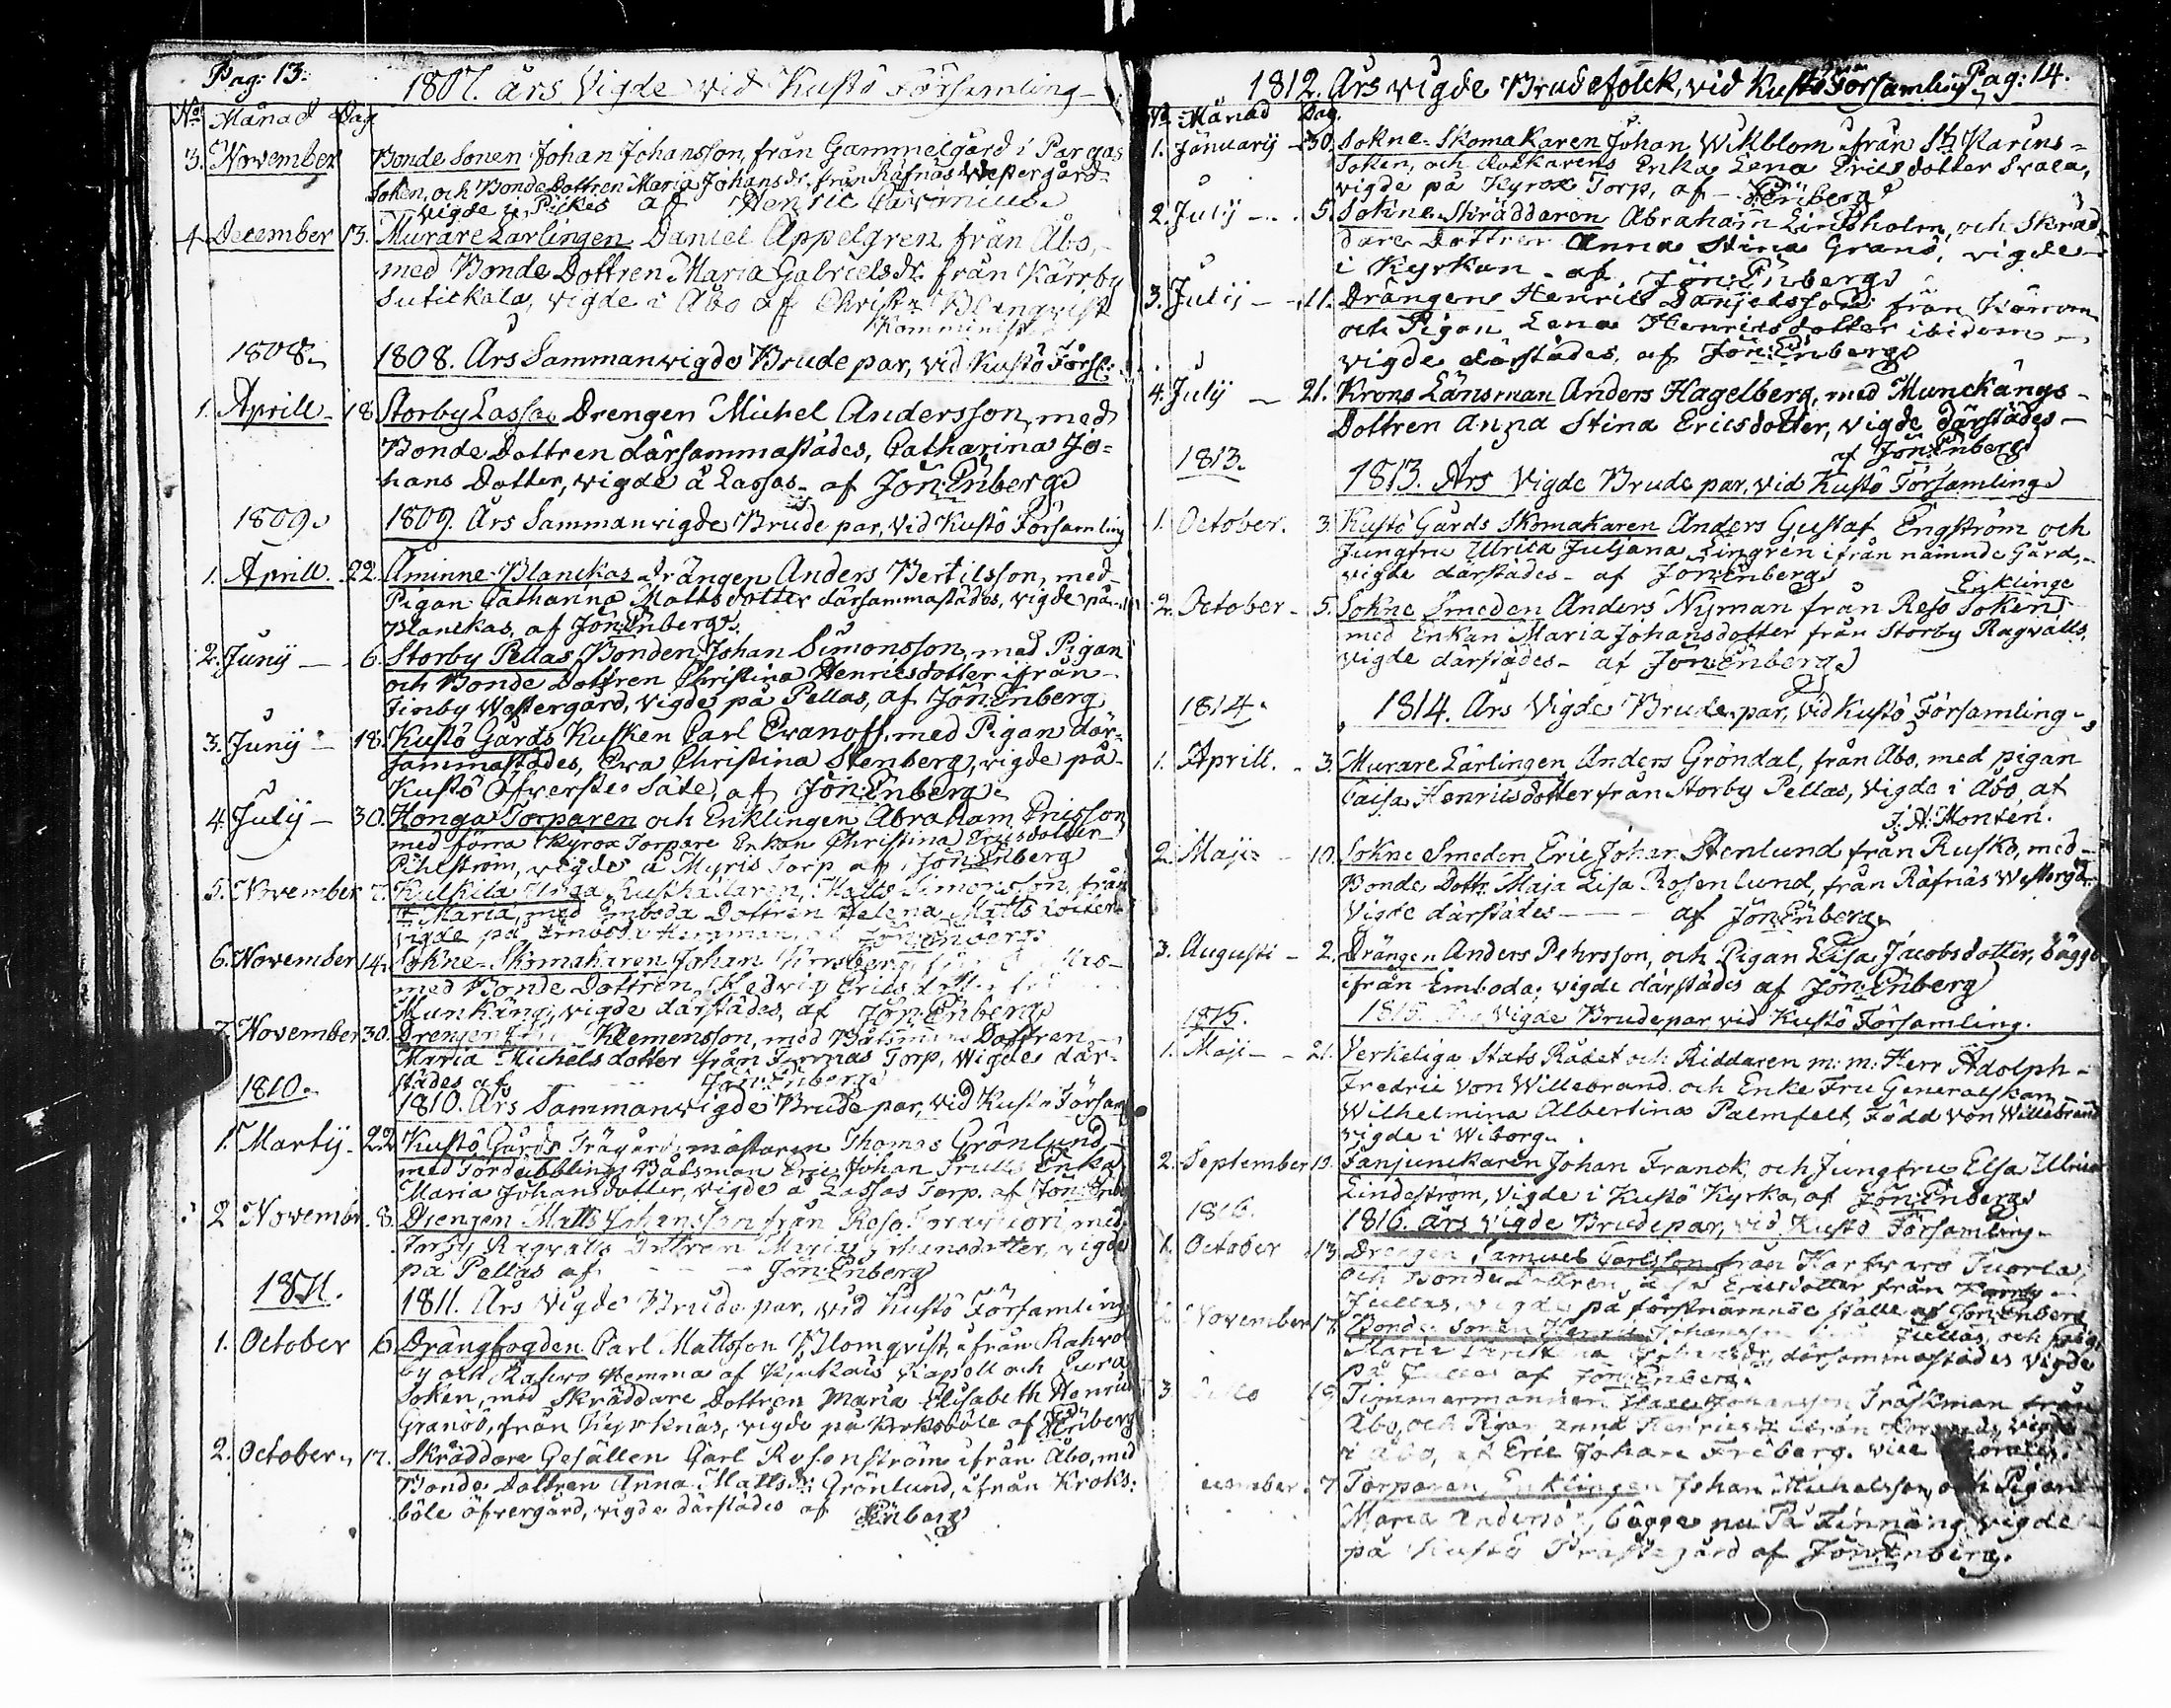 Pag: 13.
1807. års Vigde vid Kustö Församling
No Månad Dag
3. November Bonde Sonen Johan Johansson, från Gammelgård i Pargas
Soken, och Bonde Dottren Maria Johansdr. från Räfnäs Westergård
vigde i Pikes af Henric
4 December 13. Murare Lärlingen Daniel Appelgren från Åbo,
med Bonde Dottren Maria Gabrielsdr. från Kärrby
Sutickala, vigde i Åbo af Christn Blanqvist
Komminist
1808. 1808. Års Sammanvigde Brude par, vid Kustö Förs:
1. Aprill 18 Storby Lassas Drengen Michel Andersson, med
Bonde Dottren därsammastädes, Catharina Jo=
hans Dotter, vigde å Lassas af Jön: Enberg
1809. 1809. Års Sammanvigde Brude par, vid Kustö Församling
1. Aprill. 22. Åminne Blanckas drängen Anders Bertilsson, med
Pigan Catharina Mattsdotter därsammastädes, vigde på
Blanckas, af Jön: Enberg.
2. Junij 6. Storby Pellas Bonden Johan Simonsson, med Pigan
och Bonde Dottren Christina Henricsdotter ifrån
Jinby Wästergård, Vigde på Pellas, af Jön: Enberg
3. Junij 18. Kustö Gårds Kusken Carl Ivanoff, med Pigan där=
sammastädes, Eva Christina Stenberg, vigde på
Kustö Öfverstes Säte, af Jön: Enberg.
4. Julij 30. Honga Torparen och Enklingen Abraham Ericsson
med förra Kyrox Torpare Enkan Christina Ericsdotter
Pihlström, vigde å Myris Torp af Jön: Enberg
5. November 7. Kulkila Unga Rusthållaren, Matts Simonsson, från
St. Maria, med Emboda Dottren Helena Mattsdotter
vigde på Emboda af Jön: Enberg
6. November 14. Sokne Skomakaren Johan
med Bonde Dottren Hedvig Ericsdotter
Munkäng, vigde därstädes, af Jön: Enberg
7. November 30. Drengen Klemensson, med Båtsmans Dottren
Maria Michelsdotter från Torp, vigde där=
städes af Jön: Enberg
1810. 1810. Års Sammanvigde Brude par, vid Kustö Försam
1. Martij 22 Kustö Gårds Trägårdsmästaren Thomas Grönlund,
med Båtsman Eric Johan Trulls Enka
Maria Johansdotter, vigde å Lassas Torp. af Jön: Enb
2 Novembr. 8. Drengen Matts Johansson från Reso med
Storby Ragvalls Dottren Maria Johansdotter, vigde
på Pellas af Jön: Enberg
1811. 1811. Års Vigde Brude par, vid Kustö Församling
1. October 6. Drängfogden Carl Mattsson Blomqvist, ifrån Kahvo
by och Kahvo Hemma af Kapell och Eura
Soken, med Skräddare Dottren Maria Elisabeth Henric
Granöö, från Kyrknäs, vigde på Kroksböle af Enberg
2. October 17. Skräddare Gesällen Carl Rosenström ifrån Åbo, med
Bonde Dottren Anna Mattsdr: Grönlund, ifrån Kroks:
böle öfvergård, vigde därstädes af Enberg
1812. Års vigde Brudefolck, vid Kustö Församling Pag: 14.
No Månad Dag.
1. Januarij 30. Sokne Skomakaren Johan Wikblom ifrån St: Karins
Soken, och Enka Lena Ericsdotter Svala,
vigde på Kyrox Torp, af Enberg
2. Julij 5. Sokne Skräddaren Abraham Lindholm, och Skräd
dare Dottren Anna Stina Granö, vigde
i Kyrkan af Jön: Enberg
3. Julij 11. Drängen Henric Danjelsson från
och Pigan Lena Henricsdotter ibidem
vigde därstädes, af Jön: Enberg
4. Julij 21. Krono Länsman Anders Hagelberg, med Munckängs
Dottren Anna Stina Ericsdotter, vigde därstädes
af Jön: Enberg
1813. 1813. Års Vigde Brude par, vid Kustö Församling
1. October. 3. Kustö Gårds Skomakaren Anders Gustaf Engström och
Jungfru Ulrica Juljana Lingren ifrån nämnde Gård,
vigde därstädes af Jön: Enberg
Enklinge
2. October 5. Sokne Smeden Anders Nyman från Reso Soken
med Enkan Maria Johansdotter från Storby Ragvalls,
vigde därstädes af Jön: Enberg
1814. 1814. Års Vigde Brude par, vid Kustö Församling
1. Aprill. 3. Murare Lärlingen Anders Gröndal, från Åbo, med pigan
Caisa Henricsdotter från Storby Pellas, vigde i Åbo af
J. A. Monten.
2. Maji 10. Sokne Smeden Eric Johan Stenlund från Rusko, med
Bonde Dottr. Maja Lisa Rosenlund, från Räfnäs Westergdr.
vigde därstädes af Jön: Enberg
3. Augusti 2. Drängen Anders Pehrsson, och Pigan Lisa Jacobsdotter, bägge
ifrån Emboda, vigde därstädes af Jön: Enberg
1815. 1815. Års Vigde Brudepar vid Kustö Församling.
1. Maji 21. Verkeliga Stats Rådet och Riddaren m: m: Herr Adolph
Fredric von Willebrand och Enke Fru Generalskan
Wilhelmina Albertina Palmfelt, Född von Willebrand
vigde i Wiborg.
2. September 10. Fanjunckaren Johan Franck, och Jungfru Elsa Ulrica
Lindeström, vigde i Kustö Kyrka, af Jön: Enberg
1816. 1816. Års vigde Brudepar, vid Kustö Församling
1. October 13. Drengen Samuel Carlsson från Harfvaro Tuorla,
och Bonde Dottren Ericsdotter från Kärrby
Jullas, vigde på förstnämnde ställe af Jön: Enberg
2. November 17. Bonde Sonen Henric Johansson Jullas, och pig
Maria därsammastädes vigde
på Jullas af Jön: Enberg.
3. 19. Timmermannen Johansson Träskman från
Åbo, och Pigan Anna Henricsdr ifrån vigde
i Åbo, af Eric Johan Friberg. vice
ecember 7 Torparen, Enklingen Johan Michelsson och Pigan
Maria Anders bägge nu På Finnäng, vigde
på Kustö Prästegård af Jön: Enberg.